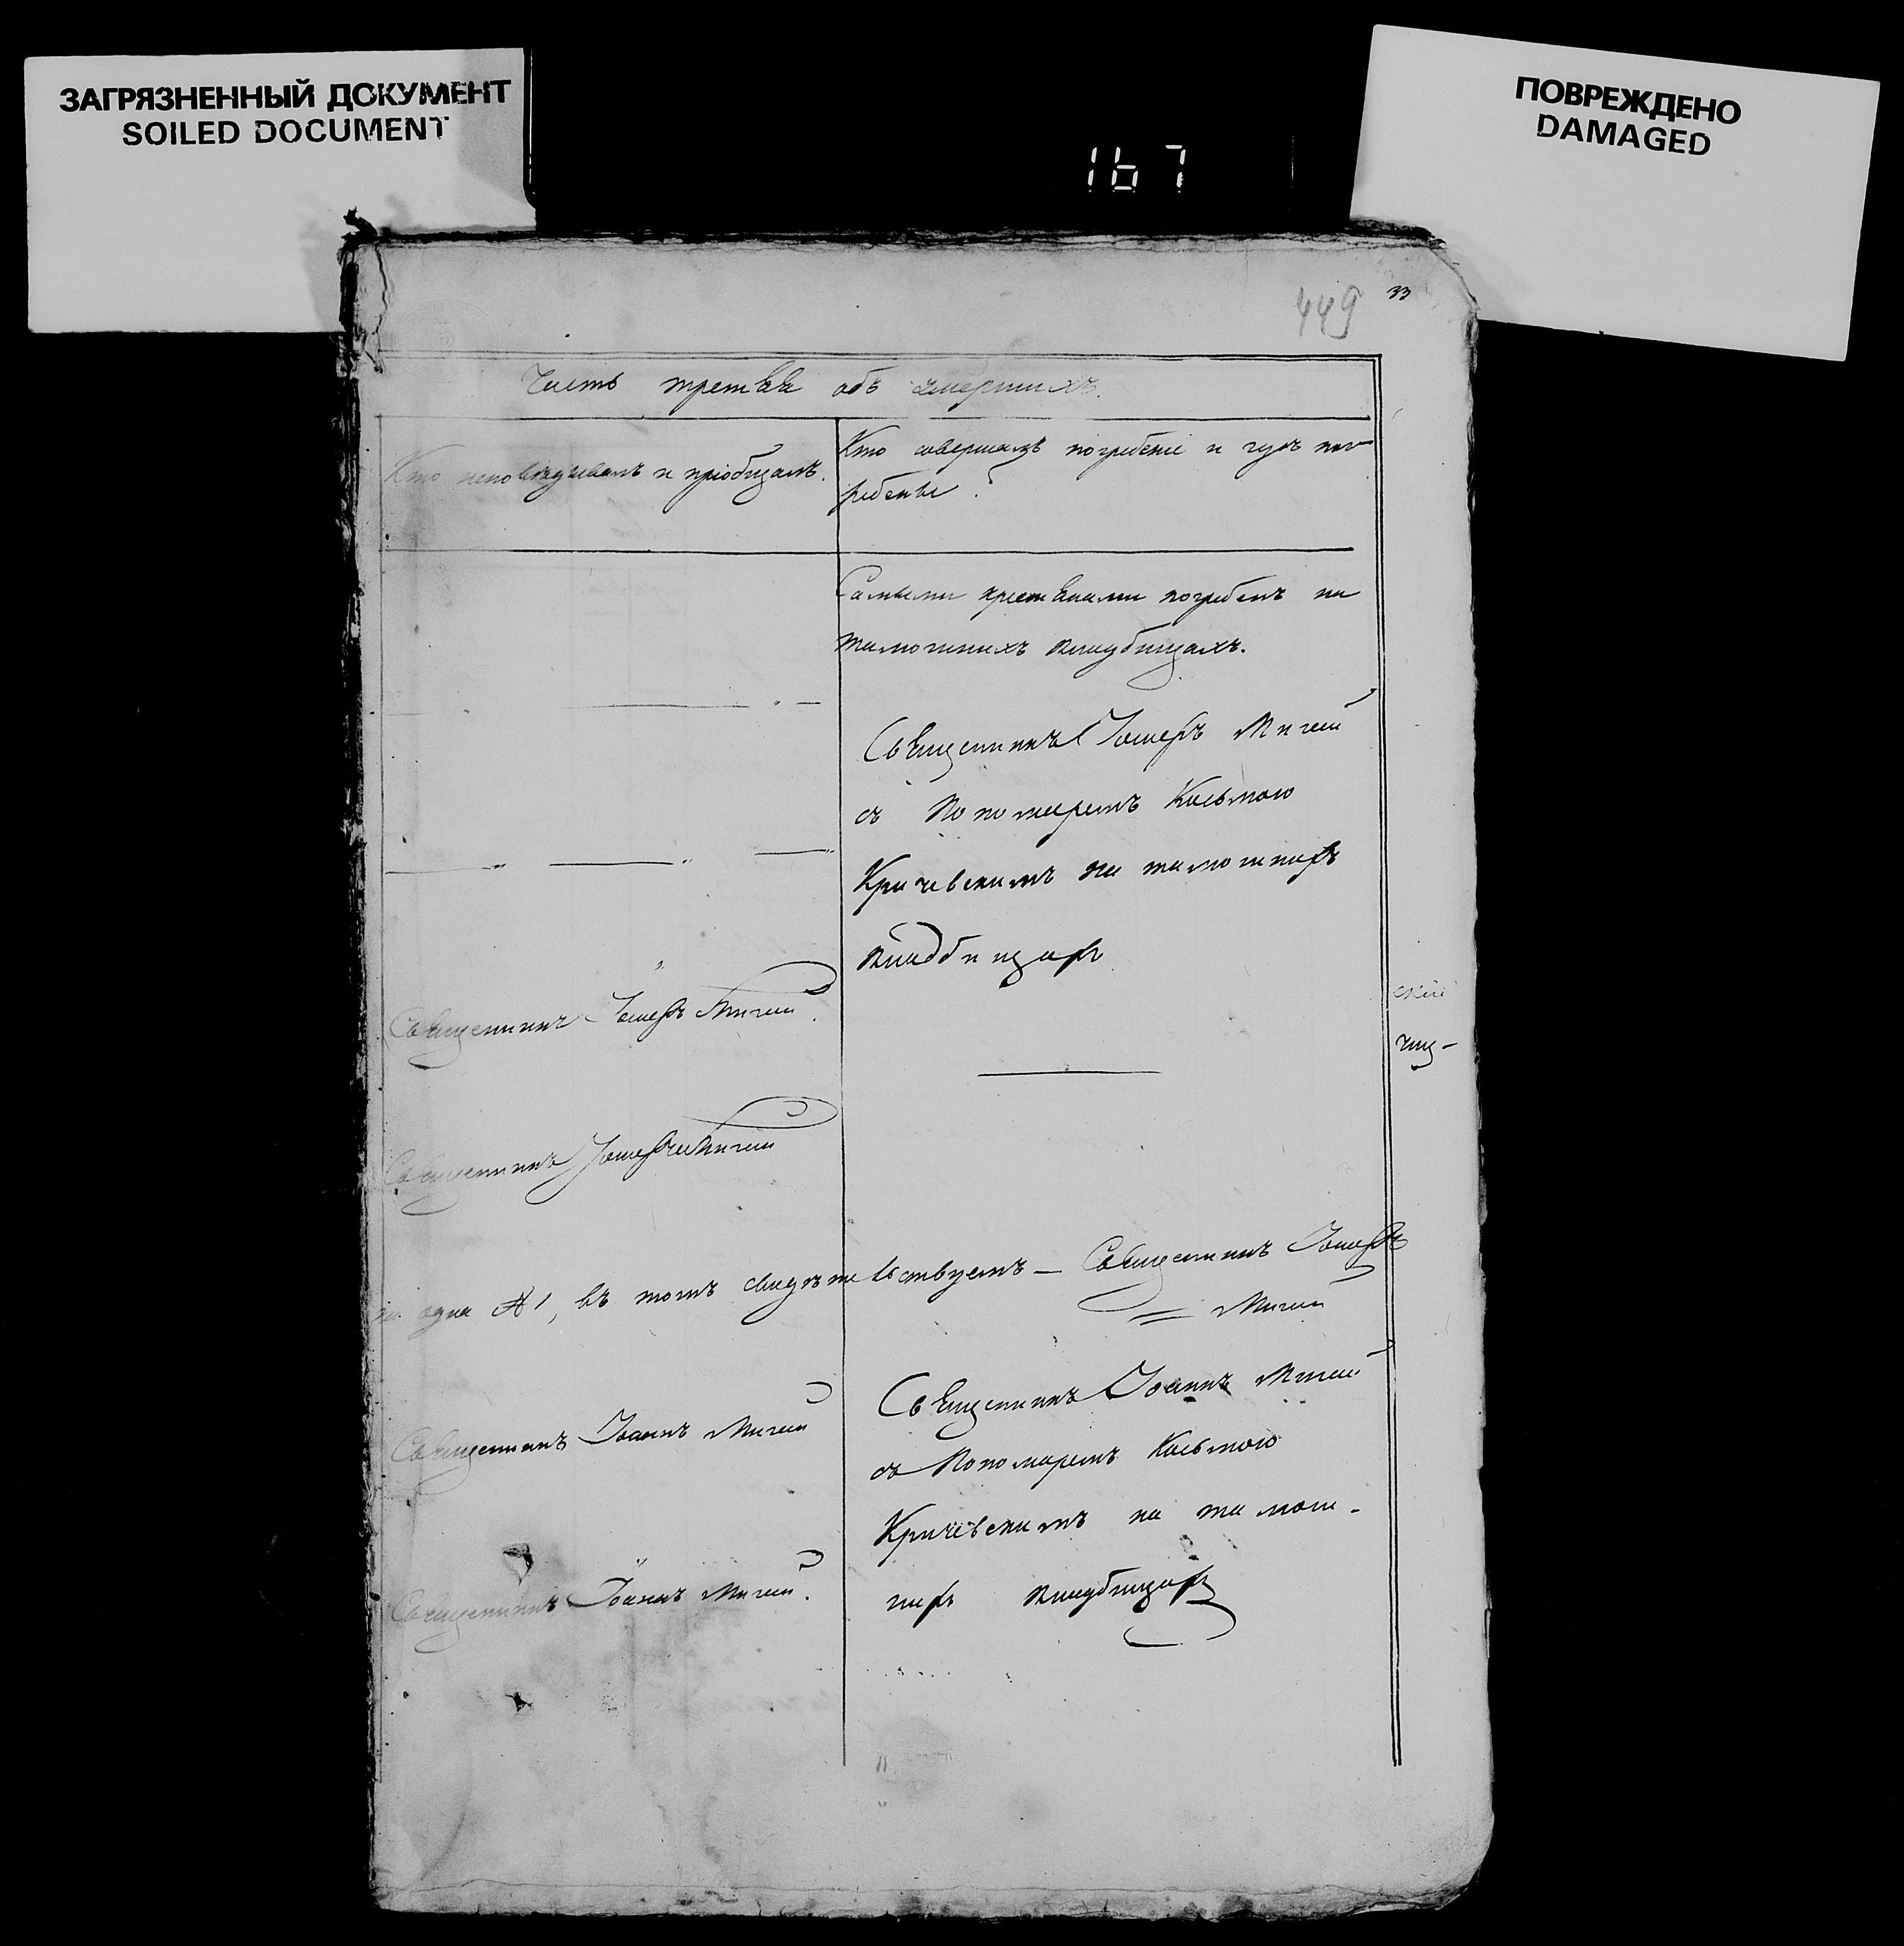 ЗАГРЯЗНЕННЫЙ ДОКУМЕНТ
SOILED DOCUMENT
ПОВРЕЖДЕНО
DAMAGED
167
449 33
Часть третья объ умершихъ.
Кто исповѣдывалъ и пріобщалъ.
Кто совершалъ погребеніе и гдѣ пог
ребены?
Самыми крестьянами погребенъ на
тамошнихъ кладбищахъ.
Священникъ Іосифъ Мигай
съ Пономаремъ Косьмою
Кричевскимъ на тамошнихъ
кладбищахъ
Священникъ Іосифъ Мигай.
скій
чищ-
Священникъ Іосифъ Мигай
одна №1, въ томъ свидѣтельствуемъ — Священникъ Іосифъ
Мигай
Священникъ Іоаннъ Мигай
Священникъ Іоаннъ Мигай
съ Пономаремъ Косьмою
Кричевскимъ на тамош-
нихъ кладбищахъ
Священникъ Іоаннъ Мигай.